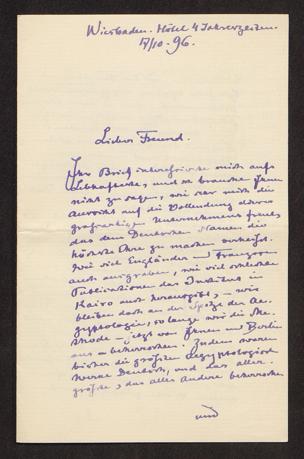 Wiesbaden. Hôtel 4 Jahreszeiten.
17/10. 96.
Lieber Freund.
Ihr Brief interessirte mich aufs
Lebhafteste, und ich brauche Ihnen
nicht zu sagen, wie sehr mich die
Aussicht auf die Vollendung dieses
großartigen Unternehmens freut,
das dem Deutschen Namen die
höchste Ehre zu machen verheißt.
Wie viel Engländer und Franzosen
auch ausgraben, wie viel
Publicationen das Institut in
Kairo auch herausgibt, – wir
bleiben doch an der Spitze der Ae-
gyptologie, so lange wir die Me-
thode – jetzt von Ihnen und Berlin
aus – beherrschen. Zudem waren
bisher die größten Aegyptologischen
Werke Deutsch, und das aller-
größte, das alles Andere beherrschen
und